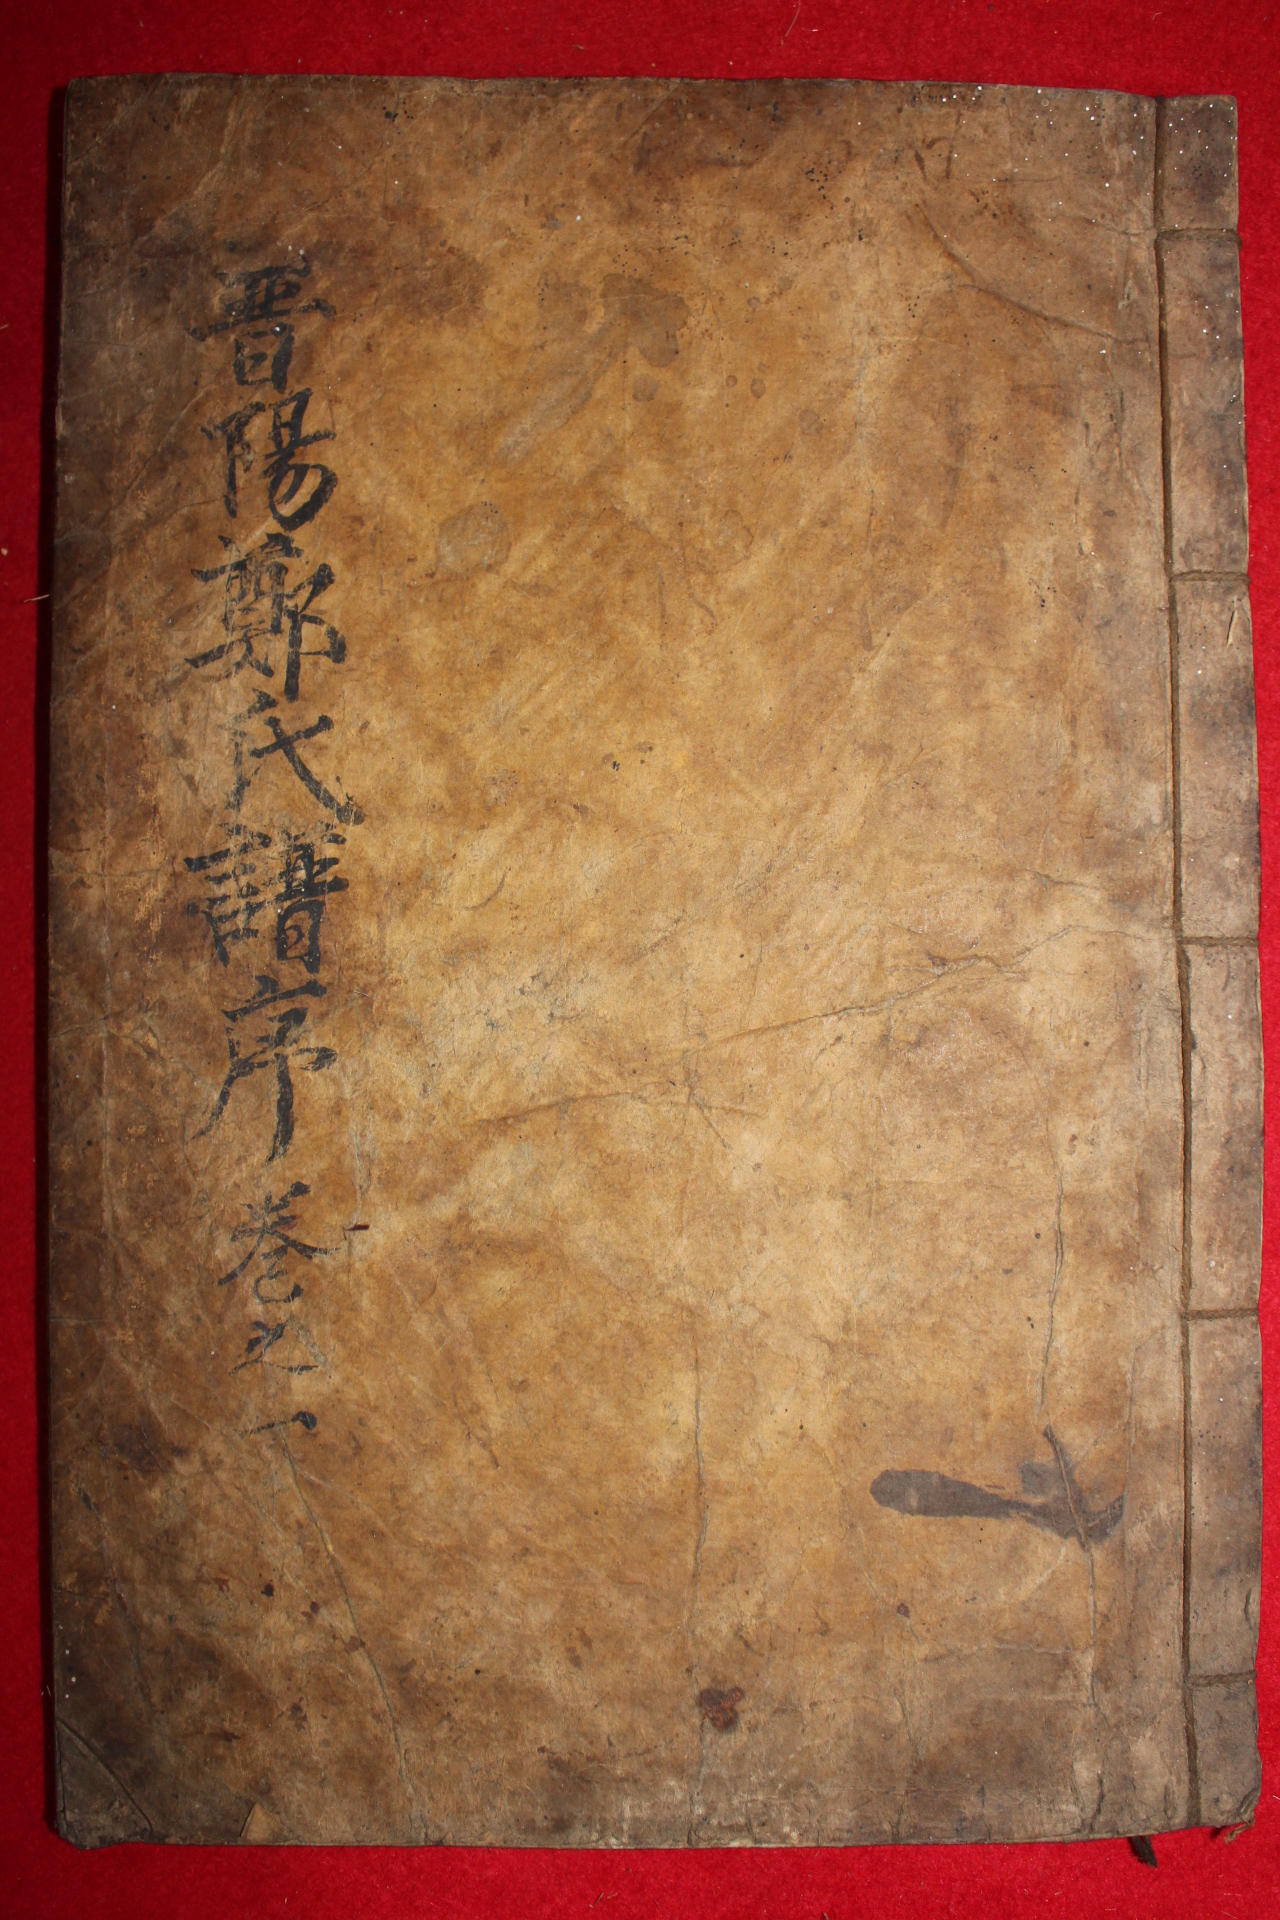 晋陽鄭氏譜序 卷之一